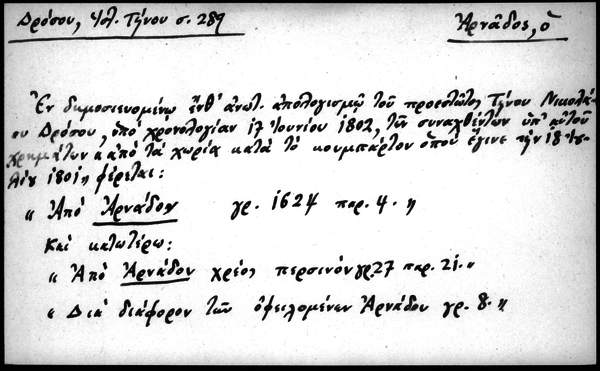 Δρόσου, Ἱστ. Τήνου σ. 289
Ἀρνᾶδος, ὁ
Ἐν δημοσιευομένῳ ἔνθ' ἀνωτ. ἀπολογισμῷ τοῦ προεστῶτος Τήνου Νικολά-
ου Δρόσου, ὑπὸ χρονολογίαν 17 Ἰουνίου 1802, τῶν συναχθέντων ὑπ' αὐτοῦ
χρημάτων "ἀπὸ τὰ χωρία κατὰ τὸ κουμπάρτον ὁποῦ ἔγινε τὴν 18 Ἰου-
λίου 1801", φέρεται:
"Ἀπὸ Ἀρνάδον γρ. 1624 παρ. 4."
Καὶ κατωτέρω:
"Ἀπὸ Ἀρνάδον χρέος περσινὸν γρ 27 παρ. 21."
"Διὰ διάφορον τῶν ὀφειλομένων Ἀρνάδου γρ. 8."